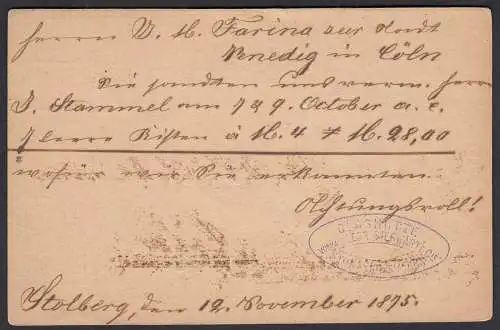 Herrn J. M. Farina zur Stadt
Venedig in Cöln
Sie sandten uns verm. Herrn
J. Stammel am 7 & 9. October a. c.
7 leere Kisten à M. 4 M. 28,00
wofür wir Sie erkannten.
Achtungsvoll!
Stolberg, den 12. November 1875.